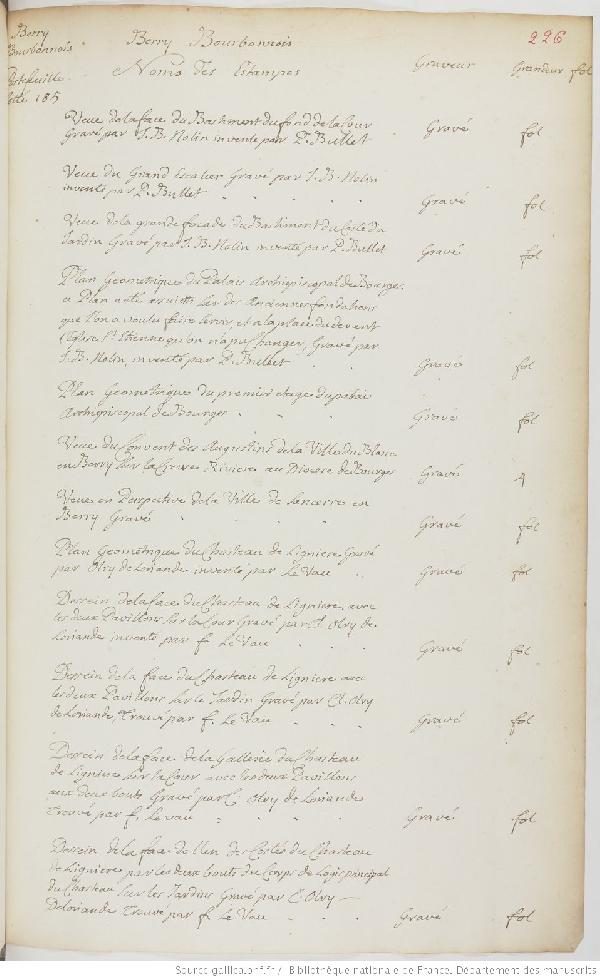 Berry
Bourbonnois
Berry Bourbonnois
226
Portefeuille
Noms des Estampes
Graveur
Grandeur fol
cotté 185
Veue de la face du Bastiment du fond de la Cour
Gravé par J. B. Nolin inventé par P. Bullet
Gravé
fol
Veue du Grand Escalier Gravé par J. B. Nolin
inventé par P. Bullet
Gravé
fol
Veue de la grande façade du Bastiment du Costé du
Jardin Gravé par J. B. Nolin inventé par P. Bullet
Gravé
fol
Plan Geometrique du Palais Archiepiscopal de Bourges
ce Plan a esté anciennes fondations
que l'on a voulu faire servir, et a la place du devant
l'Eglise St Etienne qu'on n'a pu Changer, Gravé par
J. B. Nolin, inventé par P. Bullet
Gravé
fol
Plan Geometrique du premier etage du palais
Archiepiscopal de Bourges
Gravé
fol
Veue du Convent des Augustins de la Ville du Blanc
en Berry sur la Creuse Riviere au Diocese de Bourges
Gravé
4
Veue en Perspective de la Ville de Sancerre en
Berry Gravé
Gravé
fol
Plan Geometrique du Chasteau de Ligniere Gravé
par Olry de Loriande inventé par Le Vau
Gravé
fol
Dessein de la face du Chasteau de Ligniere, avec
les deux Pavillons sur la Cour Gravé par Cl. Olry de
Loriande inventé par f. Le Vau
Gravé
fol
Dessein de la face du Chasteau de Ligniere avec
les deux Pavillons sur le Jardin Gravé par Cl. Olry
de Loriande, Trouvé par f. Le Vau
Gravé
fol
Dessein de la face de la Gallerie du Chasteau
de Ligniere sur la Cour avec les deux Pavillons
aux deux bouts Gravé par C. Olry de Loriande
Trouvé par f. Le vau
Gravé
fol
Dessein de la face de l'un des Costés du Chasteau
de Ligniere par les deux bouts du Corps de Logis principal
du Chasteau sur les Jardins Gravé par C. Olry
Deloriande Trouvé par f. Le Vau
Gravé
fol
Source gallica.bnf.fr / Bibliothèque nationale de France. Département des manuscrits